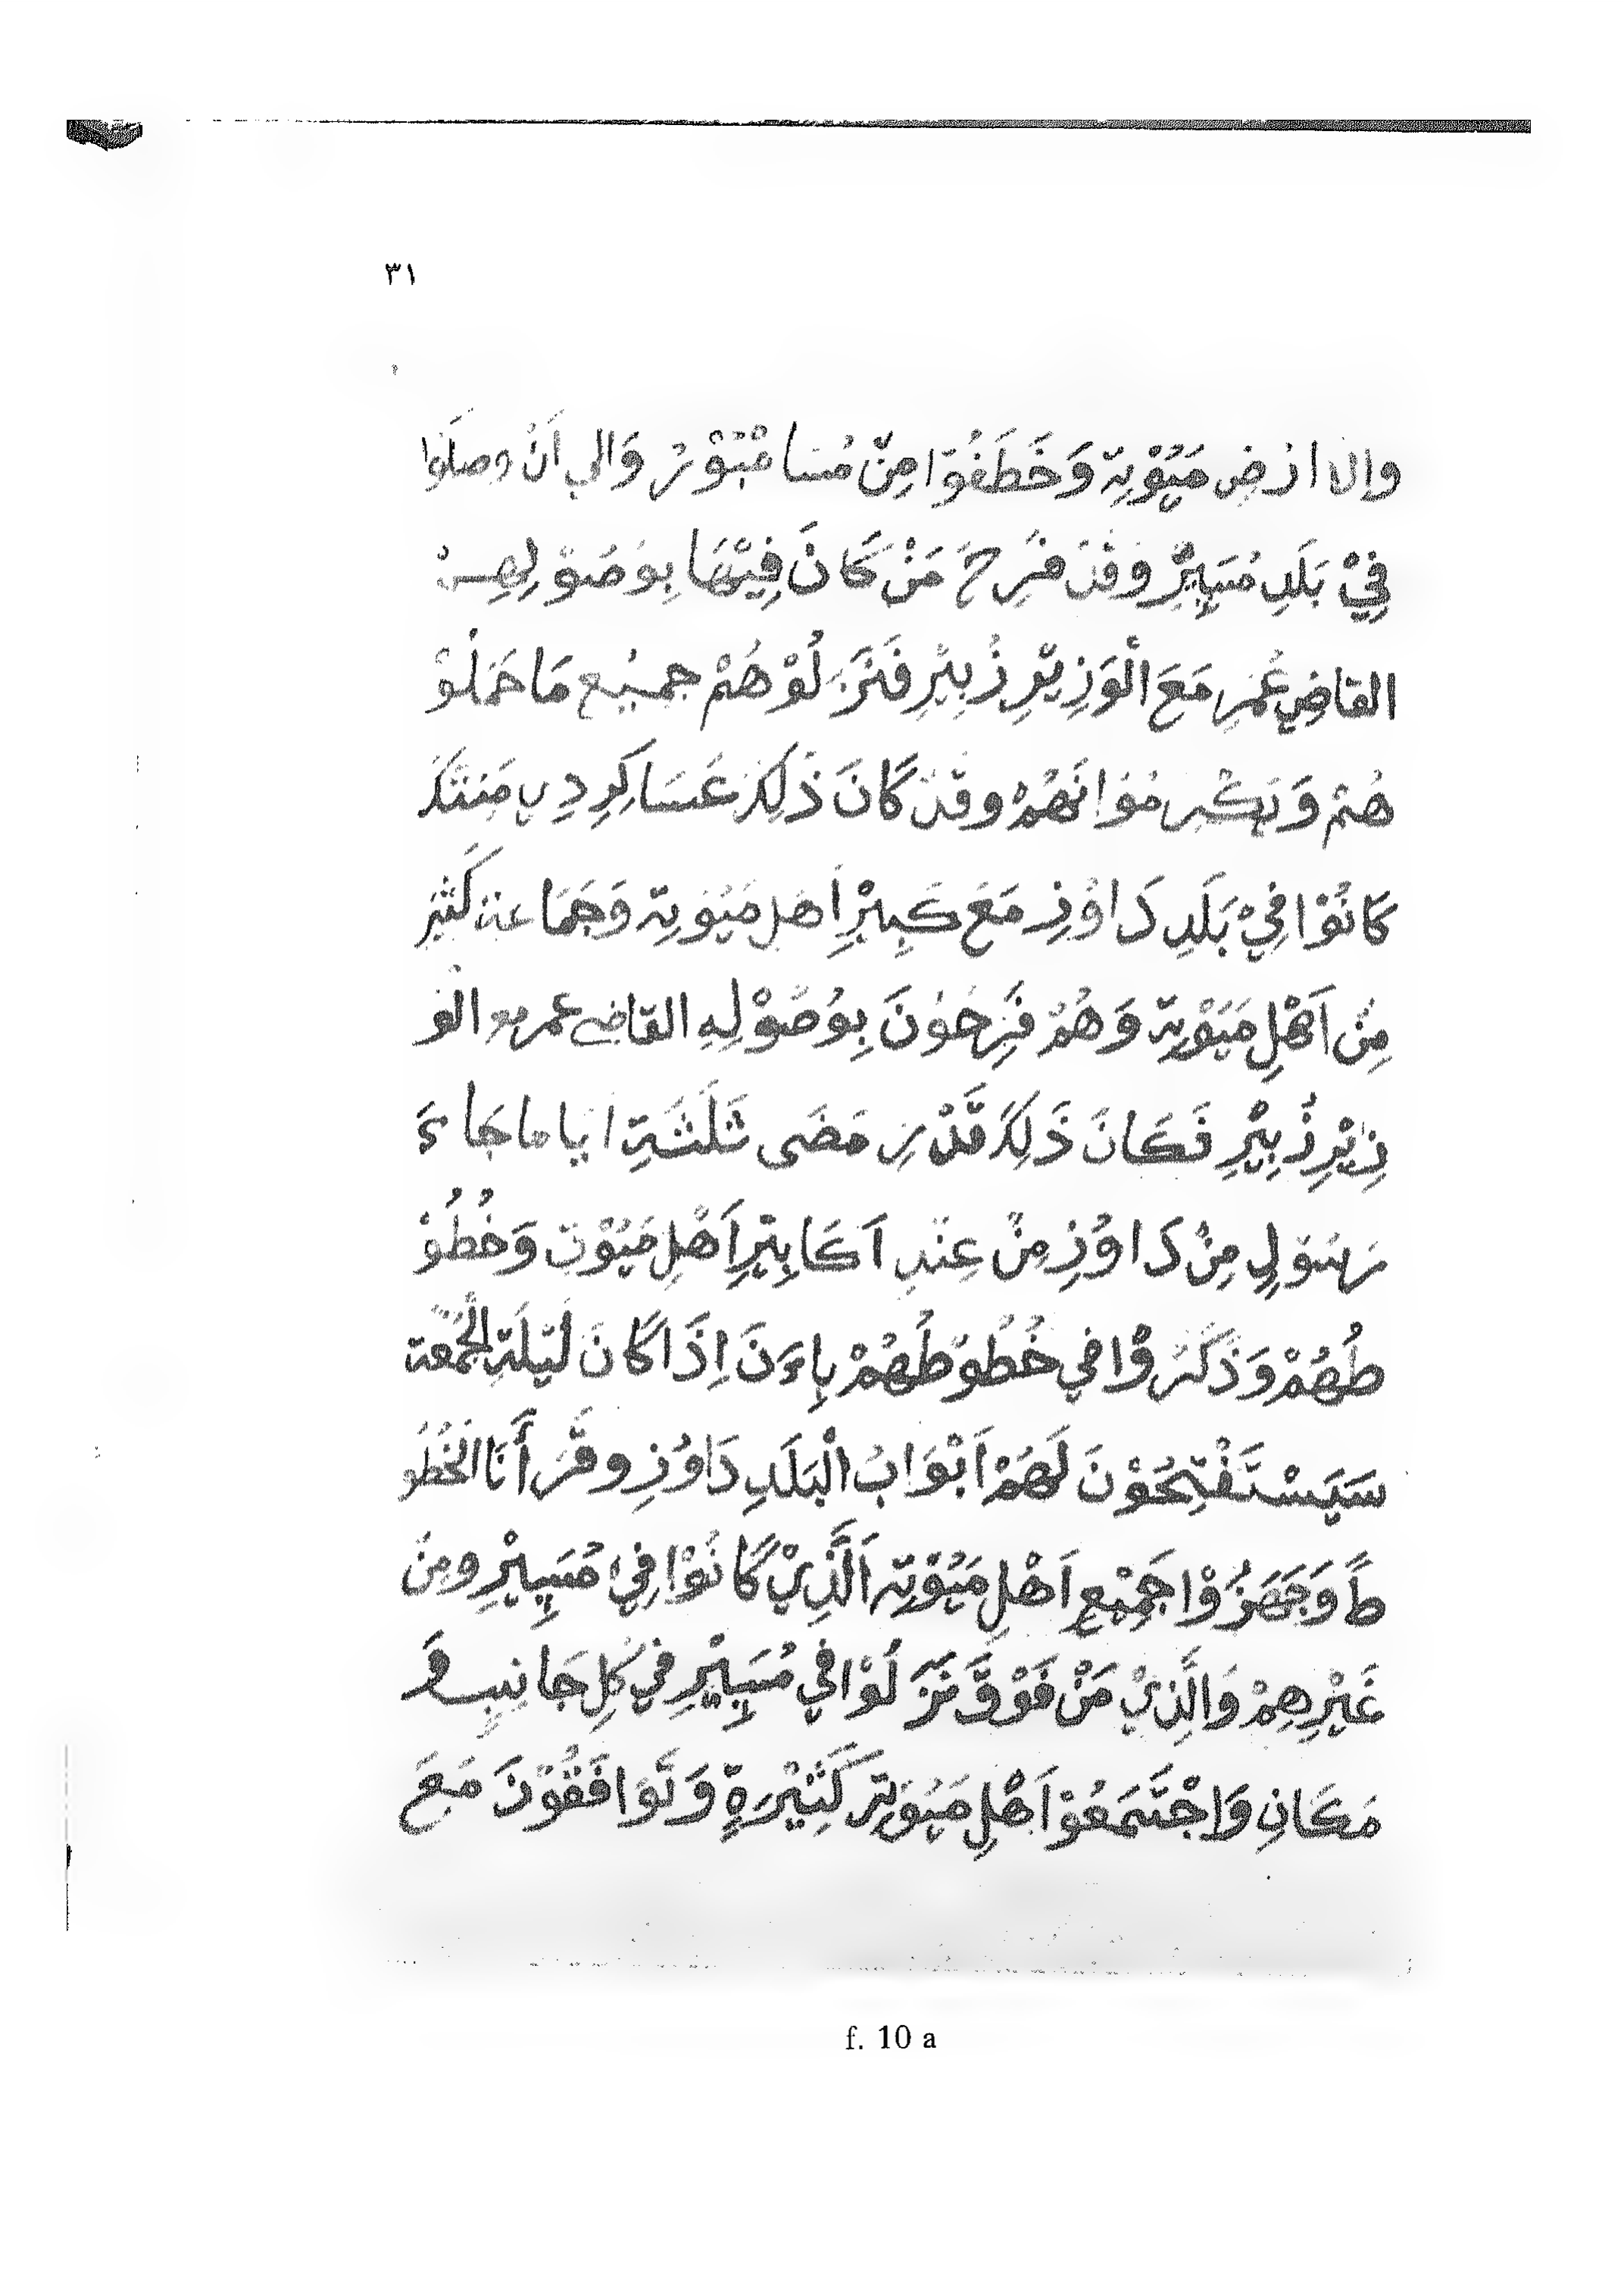 ٣١
والا ارض مَيُوْيِة وَخَطَفُوْا مِنْ مُسَامْبُوْرُ وَالي اَنْ وصلُوْا
فِيْ بَلَدِ مُسَبِيْرْ وقدْ فَرِحَ مَنْ كَانَ فِيْهَا بِوُصُوْ لِهِمْ
القاضِي عُمَرِ مَعَ الْوَزِيْرِ زُبِيْرِ فَنَزَ لُوْ هُمْ جميْع مَا حَمَلُوْ
هُمْ وَ نَهُمْ وقدْ كَانَ ذَلِكَ عَسَاكِرِ دِي
كَانُوْا فِيْ بَلَدِ دَاوُزِ مَعَ كَبِيْرِ اَهْلِ مَيُوْيِة وَجَمَاعة كَثِيْر
مِنْ اَهْلِ مَيُوْيِة وَهُمْ فَرِحُوْنَ بِوُصُوْلِهِ القاضي عمر مع الوَ
زِيْرِ زُبِيْرِ فَكَانَ ذَلِكَ قَدْرِ مَضَى ثَلَثَةِ ايَاما جَاءَ
رَسُوْلِي مِنْ دَاوُزِ مِنْ عِنْدِ اَكَابِيْرِ اَهْلِ مَيُوْيِة وَخُطُوْ
طُهُمْ وَذَكَرُوْا في خُطُوْطُهُمْ بِاءَنَ اِذَا كَانَ لَيْلَةِ الْجُمْعَة
سَيَسْتَفْتِحُوْنَ لَهُمْ اَبْوَابُ الْبَلَدِ دَاوُزِ وقَرَأْنَا الْخُطُو
طَ وَجَهَزُوْا جَمِيْعِ اَهْلِ مَيُوْيِة اَلَّذِيْ كَانُوْا فِيْ مُسَبِيْرِ ومِنْ
غَيْرِهِمْ وَالَّذِيْ مَنْ فَوْقَ نَزَ لُوْا في مُسَبِيْرِ فيْ كُلِ جَانِبِ وَ
مَكَانِ وَاجْتَمَعُوْا اَهْلِ مَيُوْيِة كَثِيْرَةٍ وَتَوَافَقُوْنَ مَعَ
f. 10 a